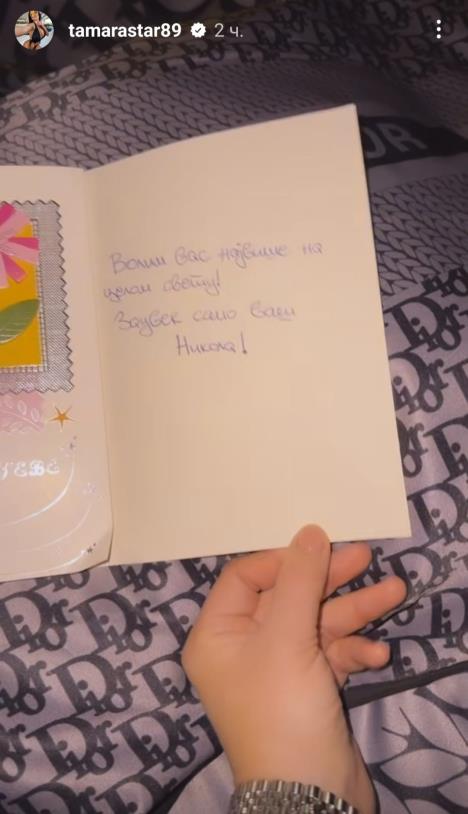 tamarastar89 2 ч.
Волим вас највише на
целом свету!
Заувек само ваш
Никола!
ТЕБЕ
DIOR
Dior